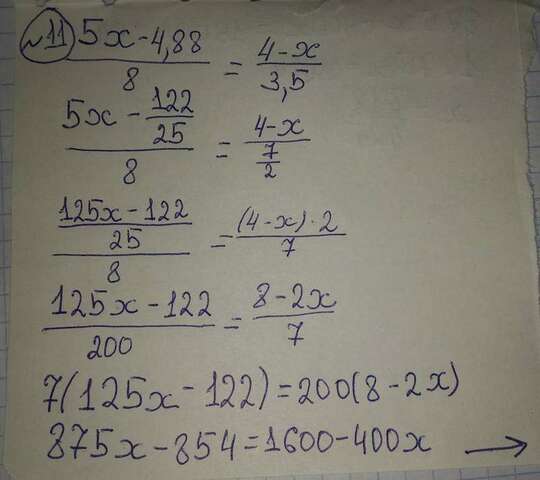 №11 (5x - 4,88)/8 = (4 - x)/3,5
(5x - 122/25)/8 = (4 - x)/(7/2)
((125x - 122)/25)/8 = ((4 - x) · 2)/7
(125x - 122)/200 = (8 - 2x)/7
7(125x - 122) = 200(8 - 2x)
875x - 854 = 1600 - 400x →